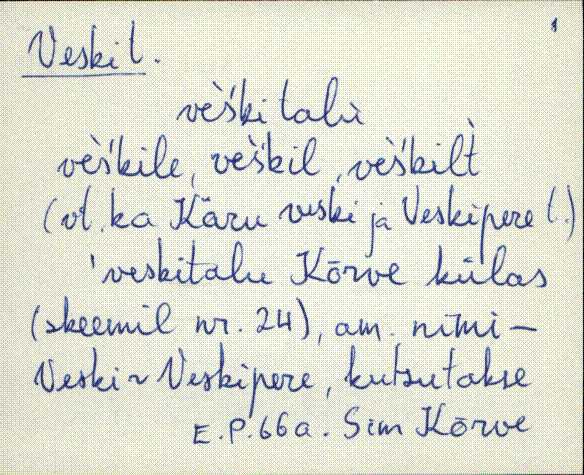 Veski t.
vèški talu
vèškile, vèškil, vèškilt
(vt. ka Käru veski ja Veskipere t.)
'veskitalu Kõrve külas
(skeemil nr. 24), am. nimi –
Veski ~ Veskipere, kutsutakse
E.P. 66a. Sim Kõrve